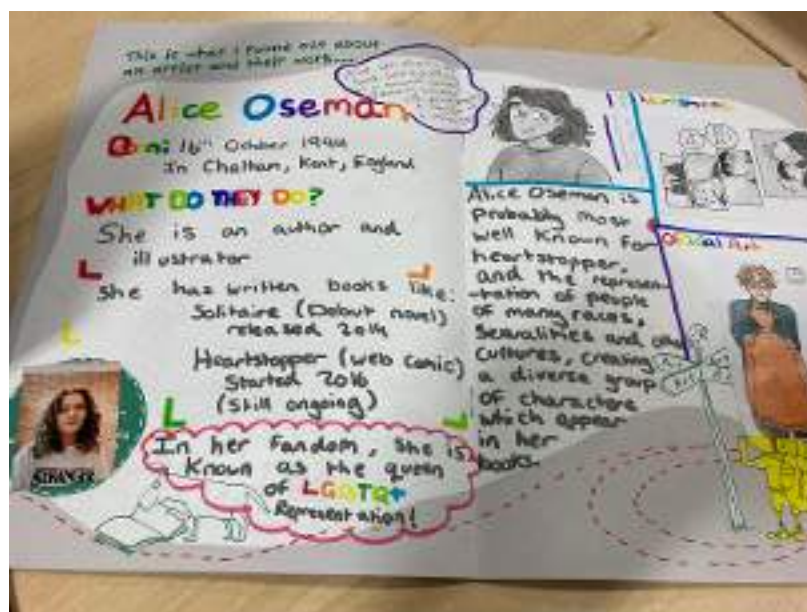 This is what I found out about
an artist and their work...
Alice Oseman
Born: 16th October 1994
In Chatham, Kent, England
WHAT DO THEY DO?
She is an author and
illustrator
She has written books like:
Solitaire (Debut novel)
released 2014
Heartstopper (web comic)
Started 2016
(Still ongoing)
In her fandom, she is
Known as the queen
of LGBTQ+
Representation!
Alice Oseman is
probably most
well known for
heartstopper,
and the represen-
-tation of people
of many races,
Sexualities and
cultures, creating
a diverse group
of characters
which appear
in her
books.
Official Art